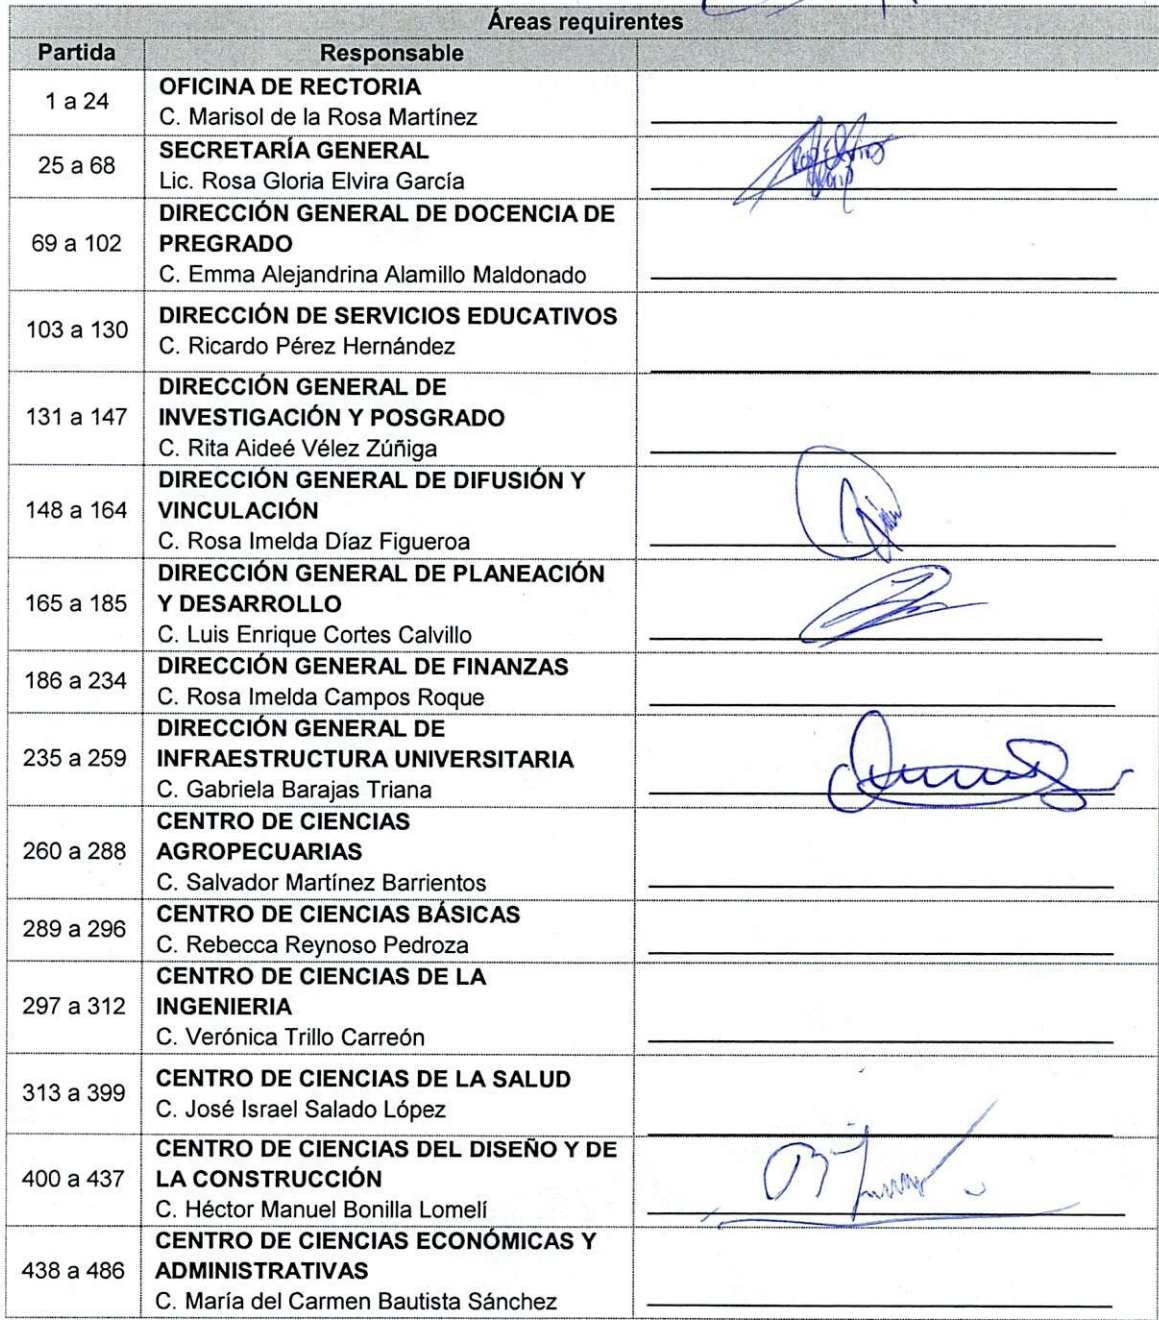 Áreas requirentes
Partida Responsable
1 a 24 OFICINA DE RECTORIA
C. Marisol de la Rosa Martínez
25 a 68 SECRETARÍA GENERAL
Lic. Rosa Gloria Elvira García
DIRECCIÓN GENERAL DE DOCENCIA DE
69 a 102 PREGRADO
C. Emma Alejandrina Alamillo Maldonado
103 a 130 DIRECCIÓN DE SERVICIOS EDUCATIVOS
C. Ricardo Pérez Hernández
DIRECCIÓN GENERAL DE
131 a 147 INVESTIGACIÓN Y POSGRADO
C. Rita Aideé Vélez Zúñiga
DIRECCIÓN GENERAL DE DIFUSIÓN Y
148 a 164 VINCULACIÓN
C. Rosa Imelda Díaz Figueroa
DIRECCIÓN GENERAL DE PLANEACIÓN
165 a 185 Y DESARROLLO
C. Luis Enrique Cortes Calvillo
186 a 234 DIRECCIÓN GENERAL DE FINANZAS
C. Rosa Imelda Campos Roque
DIRECCIÓN GENERAL DE
235 a 259 INFRAESTRUCTURA UNIVERSITARIA
C. Gabriela Barajas Triana
CENTRO DE CIENCIAS
260 a 288 AGROPECUARIAS
C. Salvador Martínez Barrientos
289 a 296 CENTRO DE CIENCIAS BÁSICAS
C. Rebecca Reynoso Pedroza
CENTRO DE CIENCIAS DE LA
297 a 312 INGENIERIA
C. Verónica Trillo Carreón
313 a 399 CENTRO DE CIENCIAS DE LA SALUD
C. José Israel Salado López
CENTRO DE CIENCIAS DEL DISEÑO Y DE
400 a 437 LA CONSTRUCCIÓN
C. Héctor Manuel Bonilla Lomelí
CENTRO DE CIENCIAS ECONÓMICAS Y
438 a 486 ADMINISTRATIVAS
C. María del Carmen Bautista Sánchez